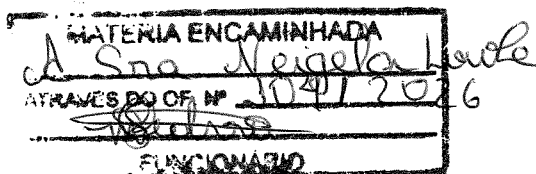 MATERIA ENCAMINHADA
A Sra Neigela
ATRAVES DO OF. Nº 104/2026
FUNCIONARIO